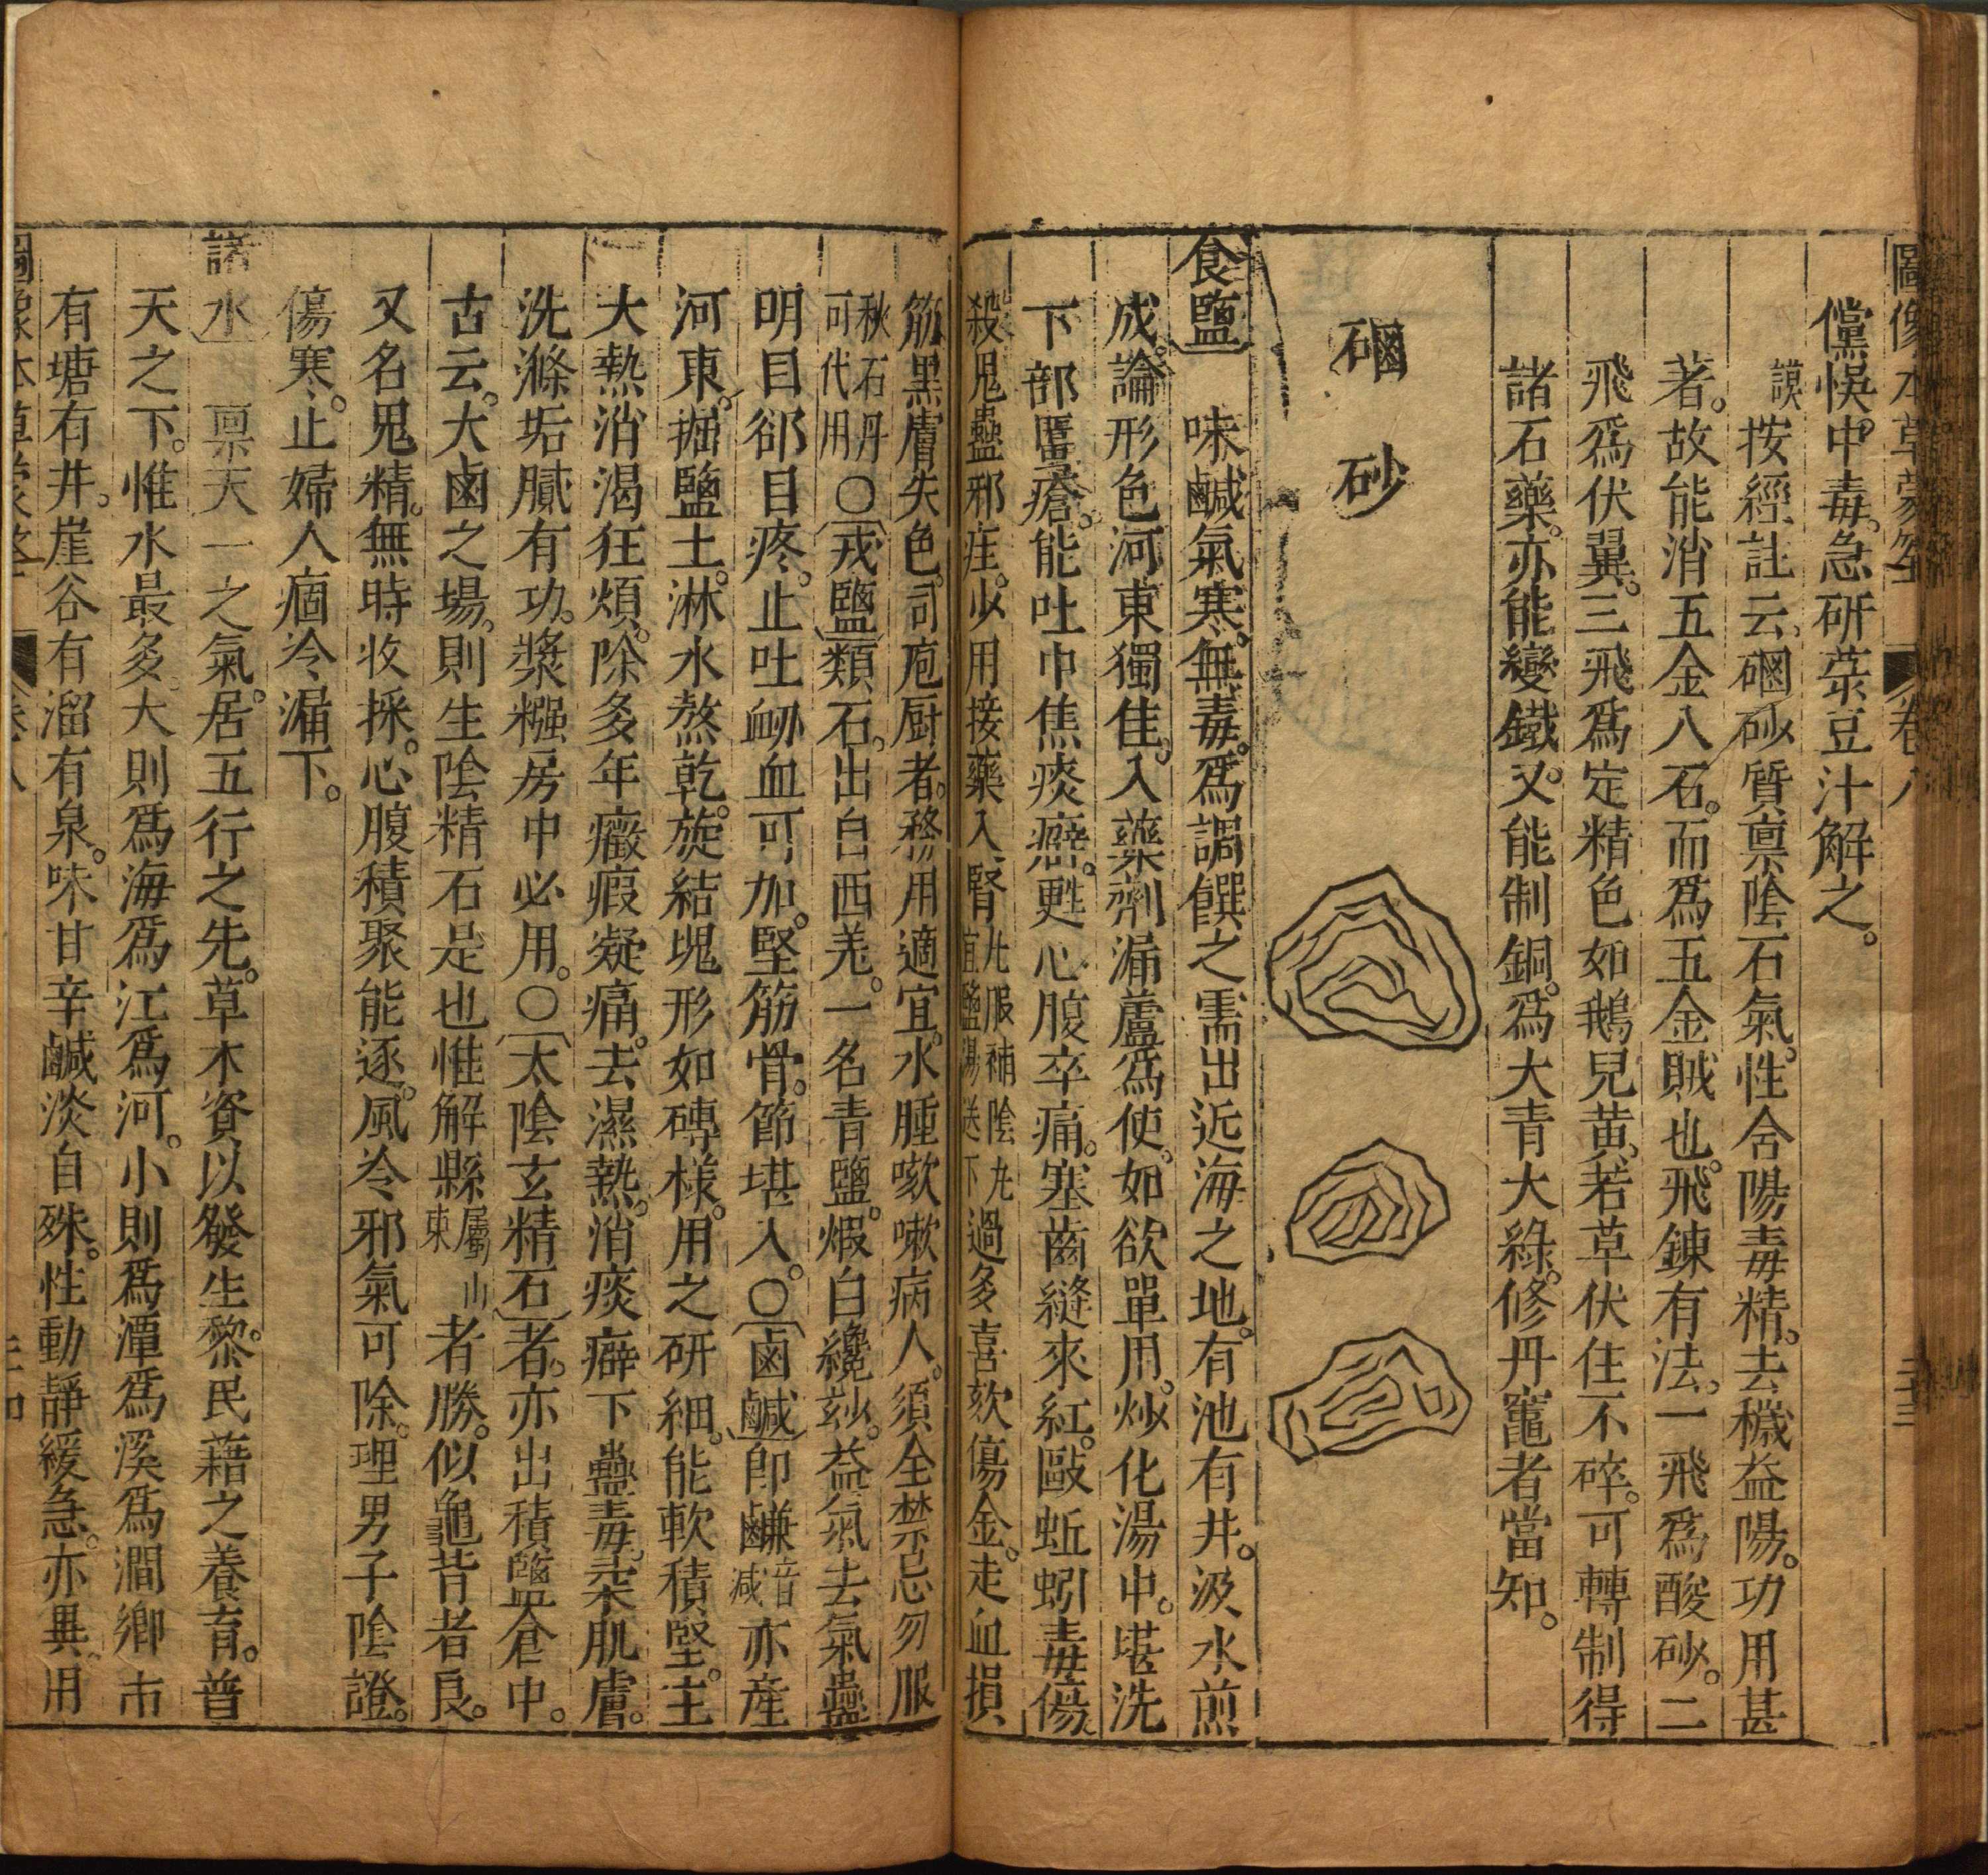 圖像本草蒙筌 卷八 二十三
儻悞中毒。急研菉豆汁解之。
謨按經註云。硇砂質禀陰石氣。性含陽毒精。去穢益陽。功用甚
著。故能消五金八石。而爲五金賊也。飛鍊有法。一飛爲酸砂。二
飛爲伏翼。三飛爲定精色如鵝兒黃。若草伏住不碎。可轉制得
諸石藥。亦能變鐵。又能制銅。爲大青大綠。修丹竈者當知。
硇砂
食鹽 味鹹氣寒。無毒。爲調饌之需出近海之地。有池有井。汲水煎
成。論形色河東獨佳。入藥劑漏蘆爲使。如欲單用。炒化湯中。堪洗
下部䘌瘡。能吐中焦痰癖。甦心腹卒痛。塞齒縫來紅。敺蚯蚓毒傷。
殺鬼蠱邪疰。少用接藥入腎凡服補陰丸宜鹽湯送下過多喜欬傷金。走血損
筋黑膚失色。司庖厨者。務用適宜。水腫嗽嗽病人。須全禁忌勿服
秋石丹可代用○戎鹽類石。出自西羌。一名青鹽。煆白纔玅。益氣去氣蠱
明目郤目疼。止吐衂血可加。堅筋骨。節堪入。○鹵鹹即鹻音減亦産
河東。掘鹽土。淋水熬乾。旋結塊形如磚樣。用之研細。能軟積堅。主
大熱消渴狂煩。除多年癥瘕凝痛。去濕熱。消痰癖下蠱毒。柔肌膚。
洗滌垢膩有功。漿糨房中必用。○太陰玄精石者。亦出積鹽倉中。
古云。大鹵之場。則生陰精石是也惟解縣屬山東者勝。似龜背者良。
又名鬼精。無時收採。心腹積聚能逐。風冷邪氣可除。理男子陰證。
傷寒。止婦人痼冷漏下。
諸水 禀天一之氣。居五行之先。草木資以發生。黎民藉之養育。普
天之下。惟水最多。大則爲海爲江爲河。小則爲潭爲溪爲澗鄉市
有塘有井。崖谷有溜有泉。味甘辛鹹淡自殊。性動靜緩急。亦異。用
圖像本草蒙筌 卷八 二十四